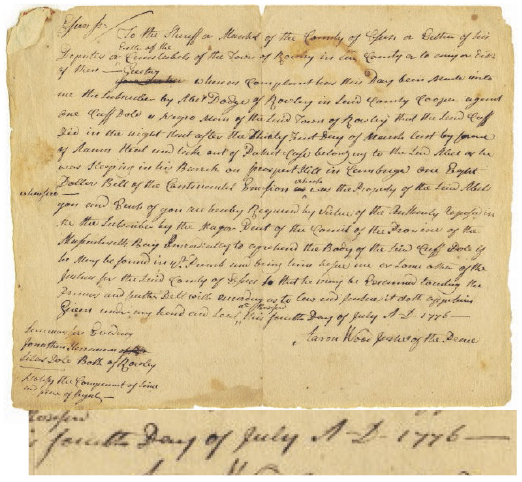 Essex Ss. To the Sheriff or Marshal of the County of Essex or Either of his
Either of the
Deputies or Constables of the Town of Rowley in said County or to any or Either
of them — Greeting
Whereas Complaint has this Day been Made unto
me the Subscriber by Abel Dodge of Rowley in Said County Cooper against
one Cuff Dole a Negro Man of the Said Town of Rowley that the Said Cuff
Did in the night next after the Thirty First Day of March last by force
of Armes Steal and take out of Packet Case belonging to the Said Abel as he
was Sleeping in his Barrack on prospect Hill in Cambrige one Eight
Dollar Bill of the Continental Emission which was the Property of the Said Abel
wherefore
you and Each of you are hereby Required by Virtue of the Authority Reposed in
me the Subscriber by the Major Part of the Council of the Province of the
Massachusetts Bay Immediately to aprehend the Body of the Said Cuff Dole if
he May be found in yr. Precinct and bring him before me or Some other of the
Justices for the Said County of Essex So that he may be Examined touching the
Premises and further Delt with
as to Law and Justice it doth appertain
at Boxford
Given under my hand and Seal, this fourth Day of July A-D-1776 —
Aaron Wood Justice of the Peace
Summons for Evidence
Jonathan
Silas Dole Both of Rowley
Notify the Complainant of time
and place of
Boxford
fourth Day of July A-D-1776 —